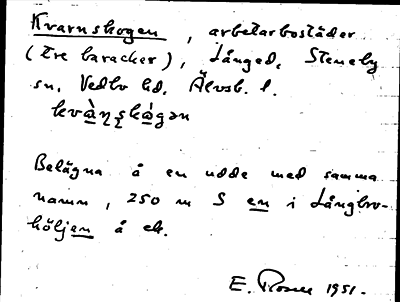 Kvarnskogen, arbetarbostäder
(tre baracker), Långed, Steneby
sn, Vedbo hd, Älvsb. l.
kvàn̥skágən
Belägna å en udde med samma
namn, 250 m S en i Långbro-
höljen å ek.
E. Rosen 1951.